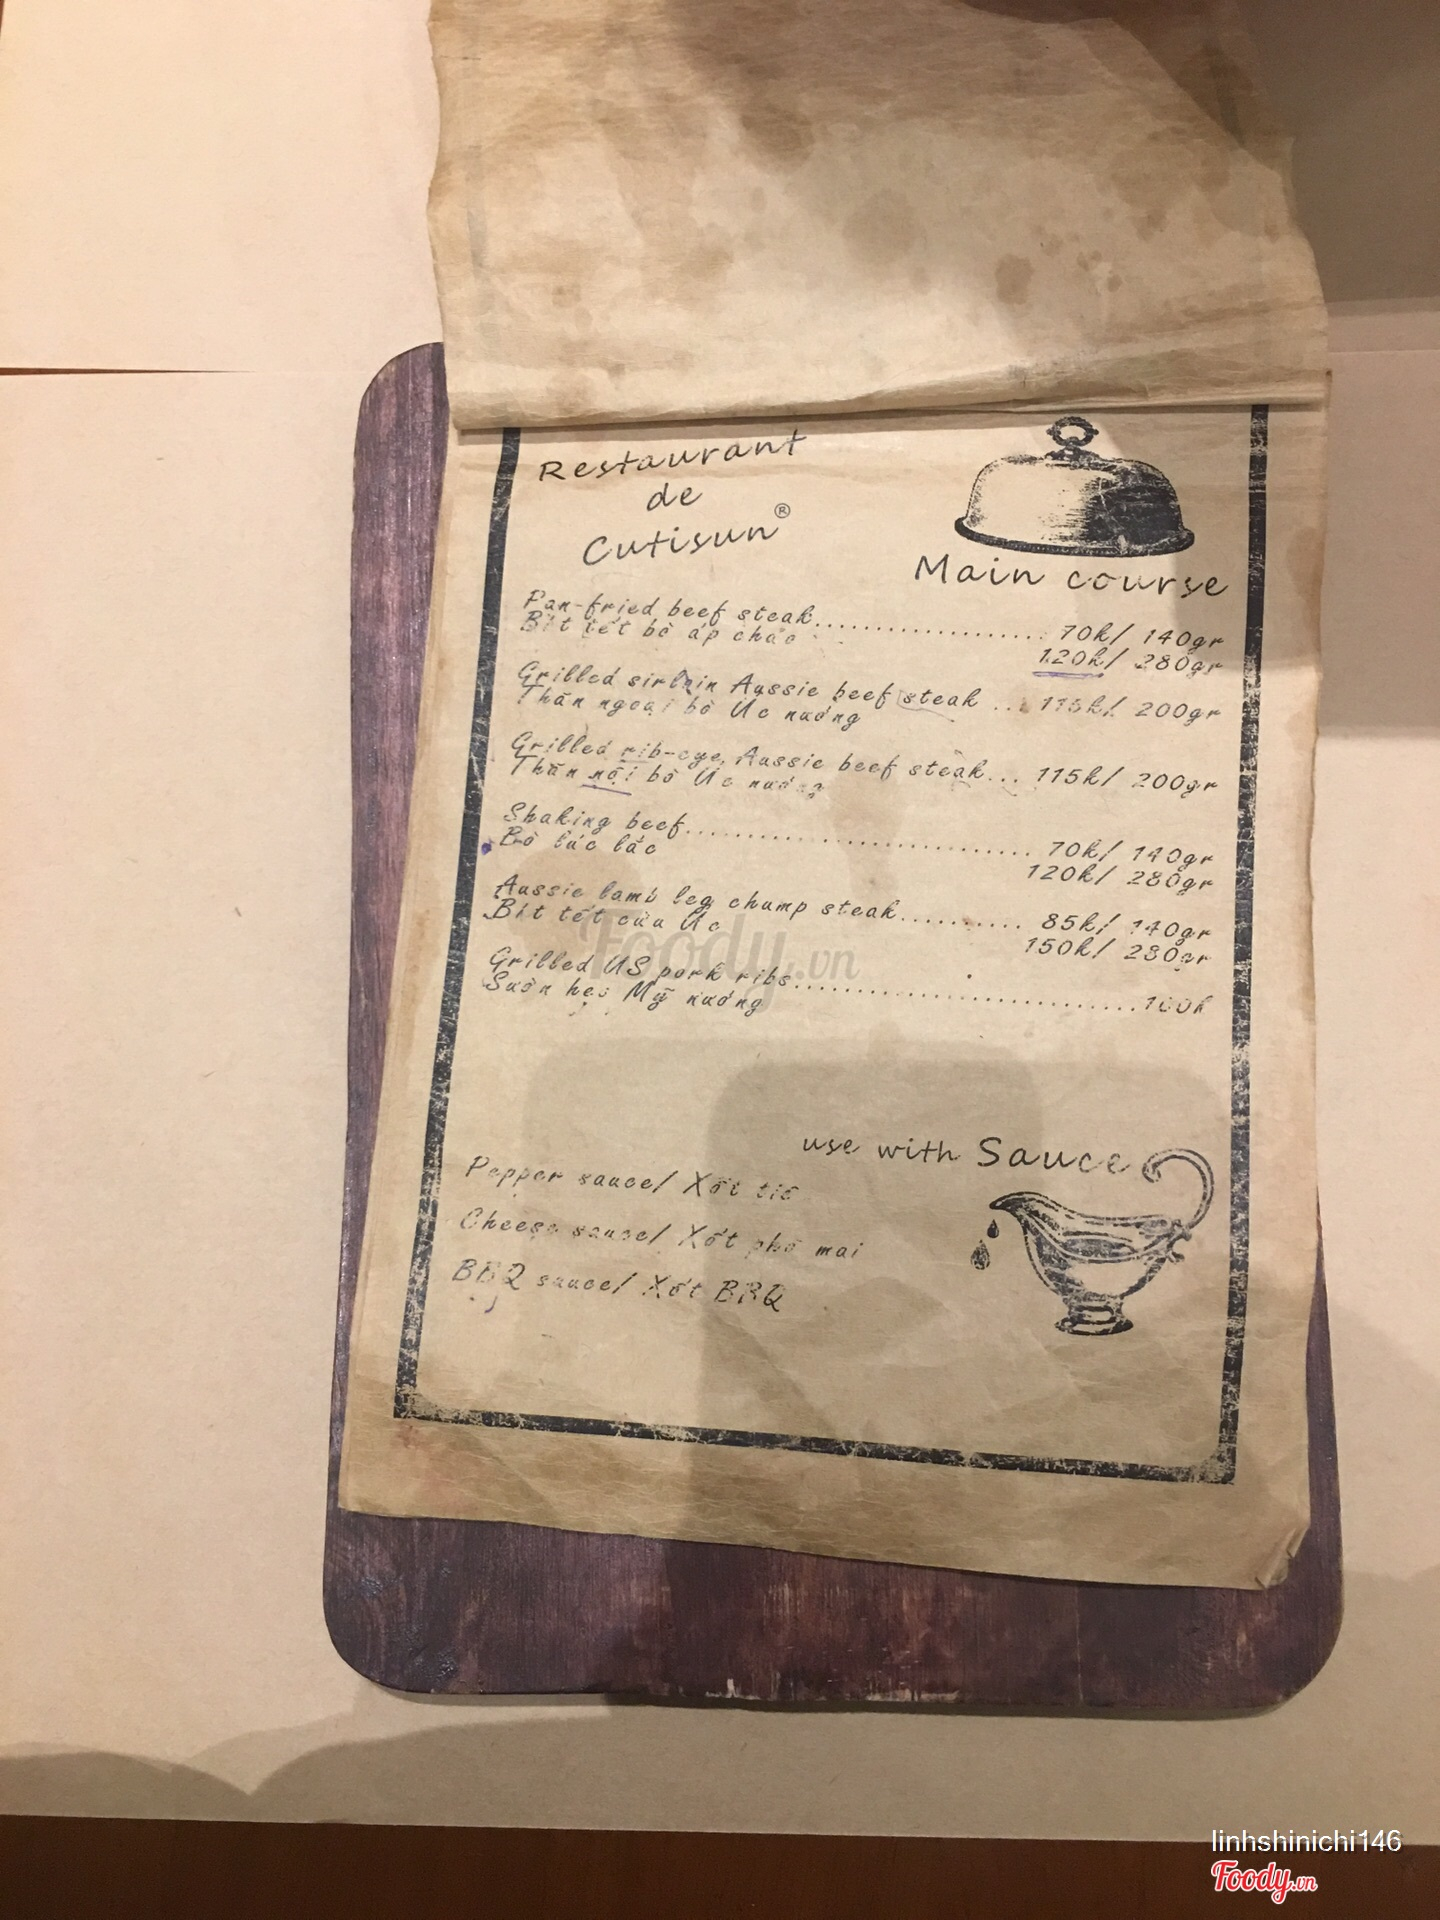 Restaurant
de
Cutisun®
Main course
Pan-fried beef steak.................... 70k/ 140gr
Bít tết bò áp chảo
120k/ 280gr
Grilled sirloin Aussie beef steak ... 115k/ 200gr
Thăn ngoại bò Úc nướng
Grilled rib-eye Aussie beef steak... 115k/ 200gr
Thăn nội bò Úc nướng
Shaking beef.............................. 70k/ 140gr
Bò lúc lắc
120k/ 280gr
Aussie lamb leg chump steak.......... 85k/ 140gr
Bít tết cừu Úc
150k/ 280gr
Grilled US pork ribs..............................100k
Sườn heo Mỹ nướng
use with Sauce
Pepper sauce/ Xốt tiê
Cheese sauce/ Xốt phô mai
BBQ sauce/ Xốt BBQ
Foody.vn
linhshinichi146
Foody.vn